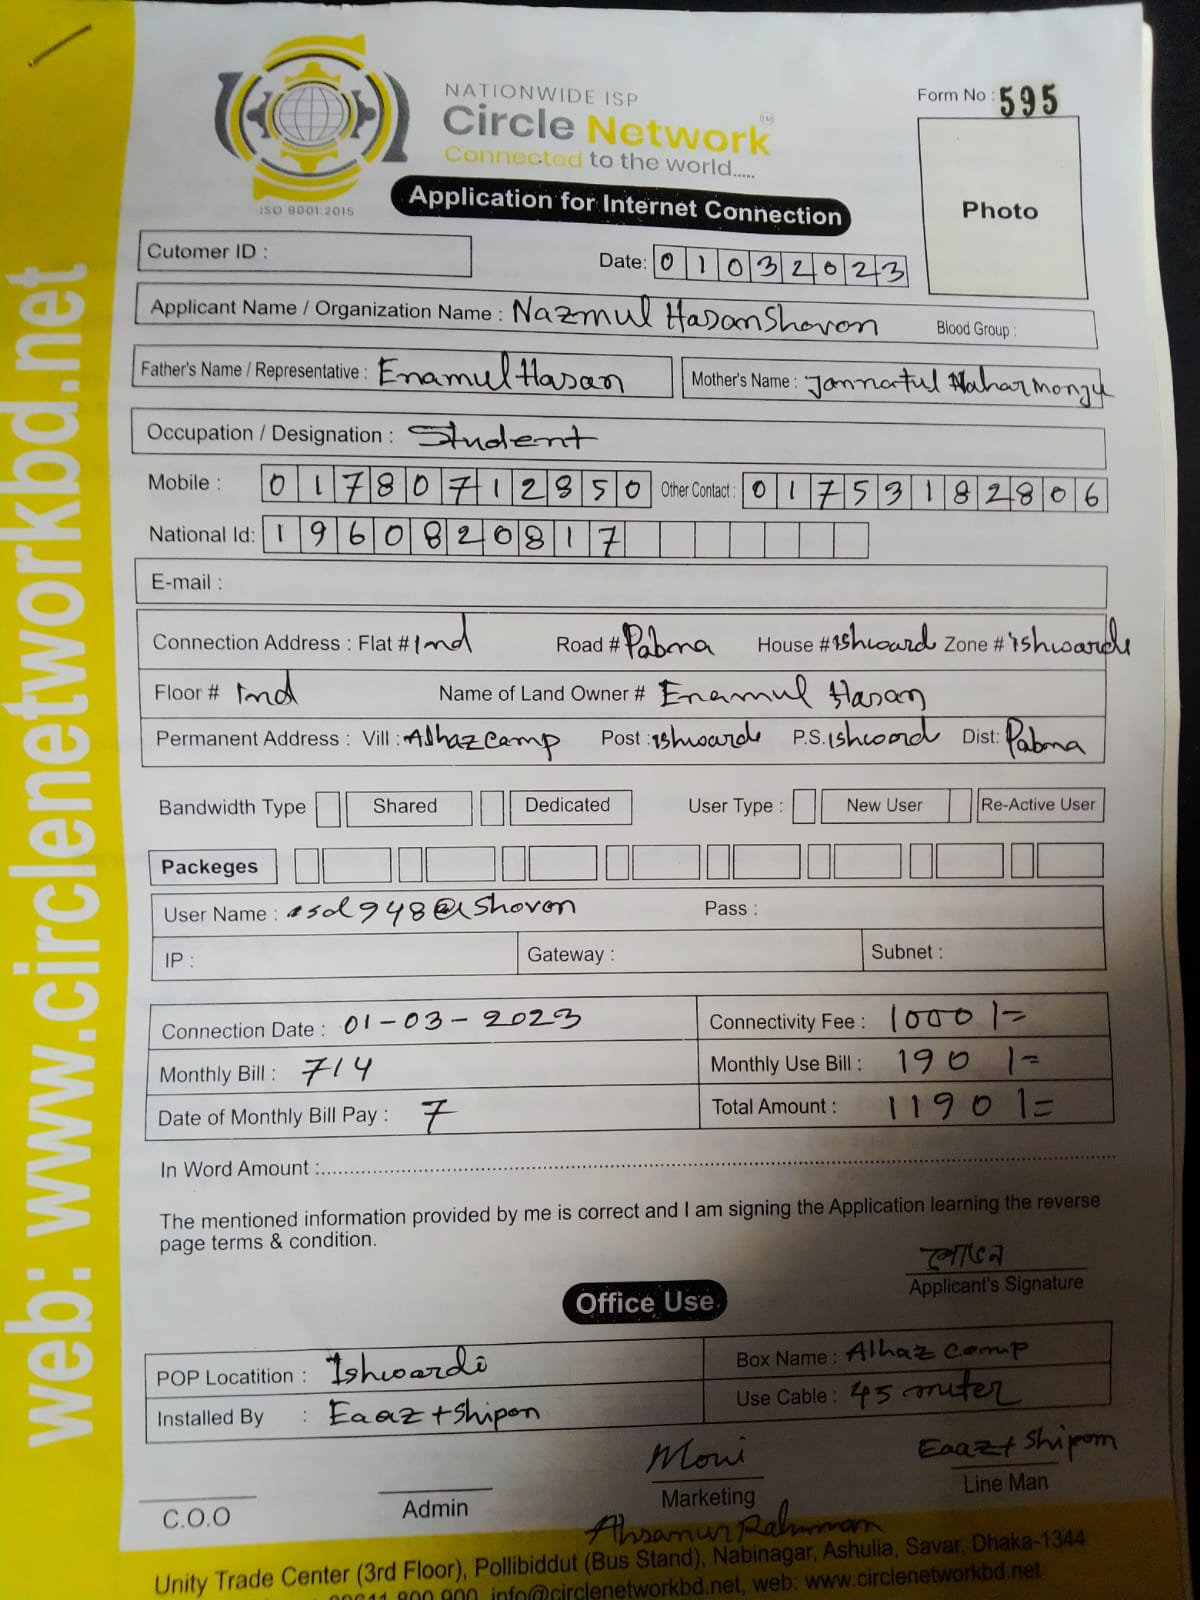 NATIONWIDE ISP
Form No : 595
Circle Network
Connected to the world.....
ISO 9001:2015
Application for Internet Connection
Photo
Cutomer ID :
Date: 01032023
Applicant Name / Organization Name : Nazmul Hasan Shovon Blood Group :
Father's Name / Representative : Enamul Hasan Mother's Name : Jannatul Nahar Monju
Occupation / Designation : Student
Mobile : 01780712850 Other Contact : 01753182806
National Id: 1960820817
E-mail :
Connection Address : Flat # 1nd Road # Pabna House # ishward Zone # ishwarde
Floor # 1nd Name of Land Owner # Enamul Hasan
Permanent Address : Vill : Alhaz camp Post : ishwarde P.S. ishword Dist: Pabna
Bandwidth Type Shared Dedicated User Type : New User Re-Active User
Packeges
User Name : sd948@shovon Pass :
IP : Gateway : Subnet :
Connection Date : 01-03-2023 Connectivity Fee : 1000/=
Monthly Bill : 714 Monthly Use Bill : 190/=
Date of Monthly Bill Pay : 7 Total Amount : 1190/=
In Word Amount :
The mentioned information provided by me is correct and I am signing the Application learning the reverse
page terms & condition.
Applicant's Signature
Office Use
POP Locatition : Ishwardi Box Name : Alhaz camp
Installed By : Eaaz + Shipon Use Cable : 45 miter
Moni Eaaz + Shipon
C.O.O Admin Marketing Line Man
Ahsanur Rahman
Unity Trade Center (3rd Floor), Pollibiddut (Bus Stand), Nabinagar, Ashulia, Savar, Dhaka-1344
info@circlenetworkbd.net, web: www.circlenetworkbd.net
web: www.circlenetworkbd.net